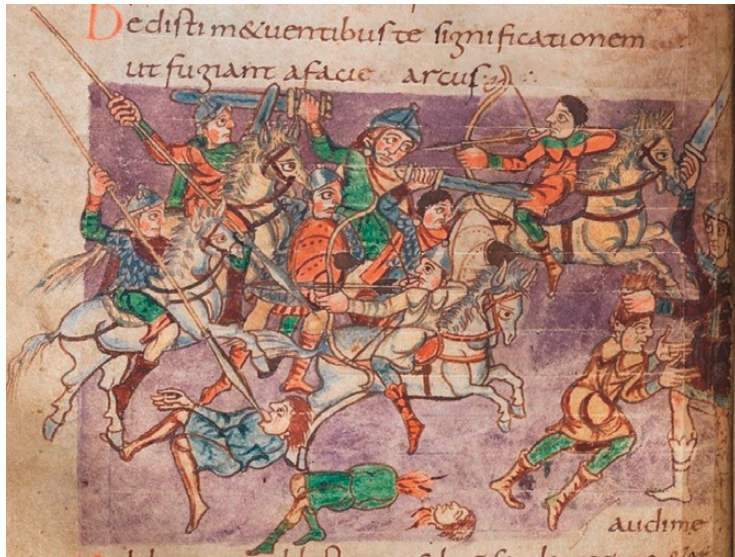 Dedisti m&uentibus te significationem
ut fugiant a facie arcus
audi me